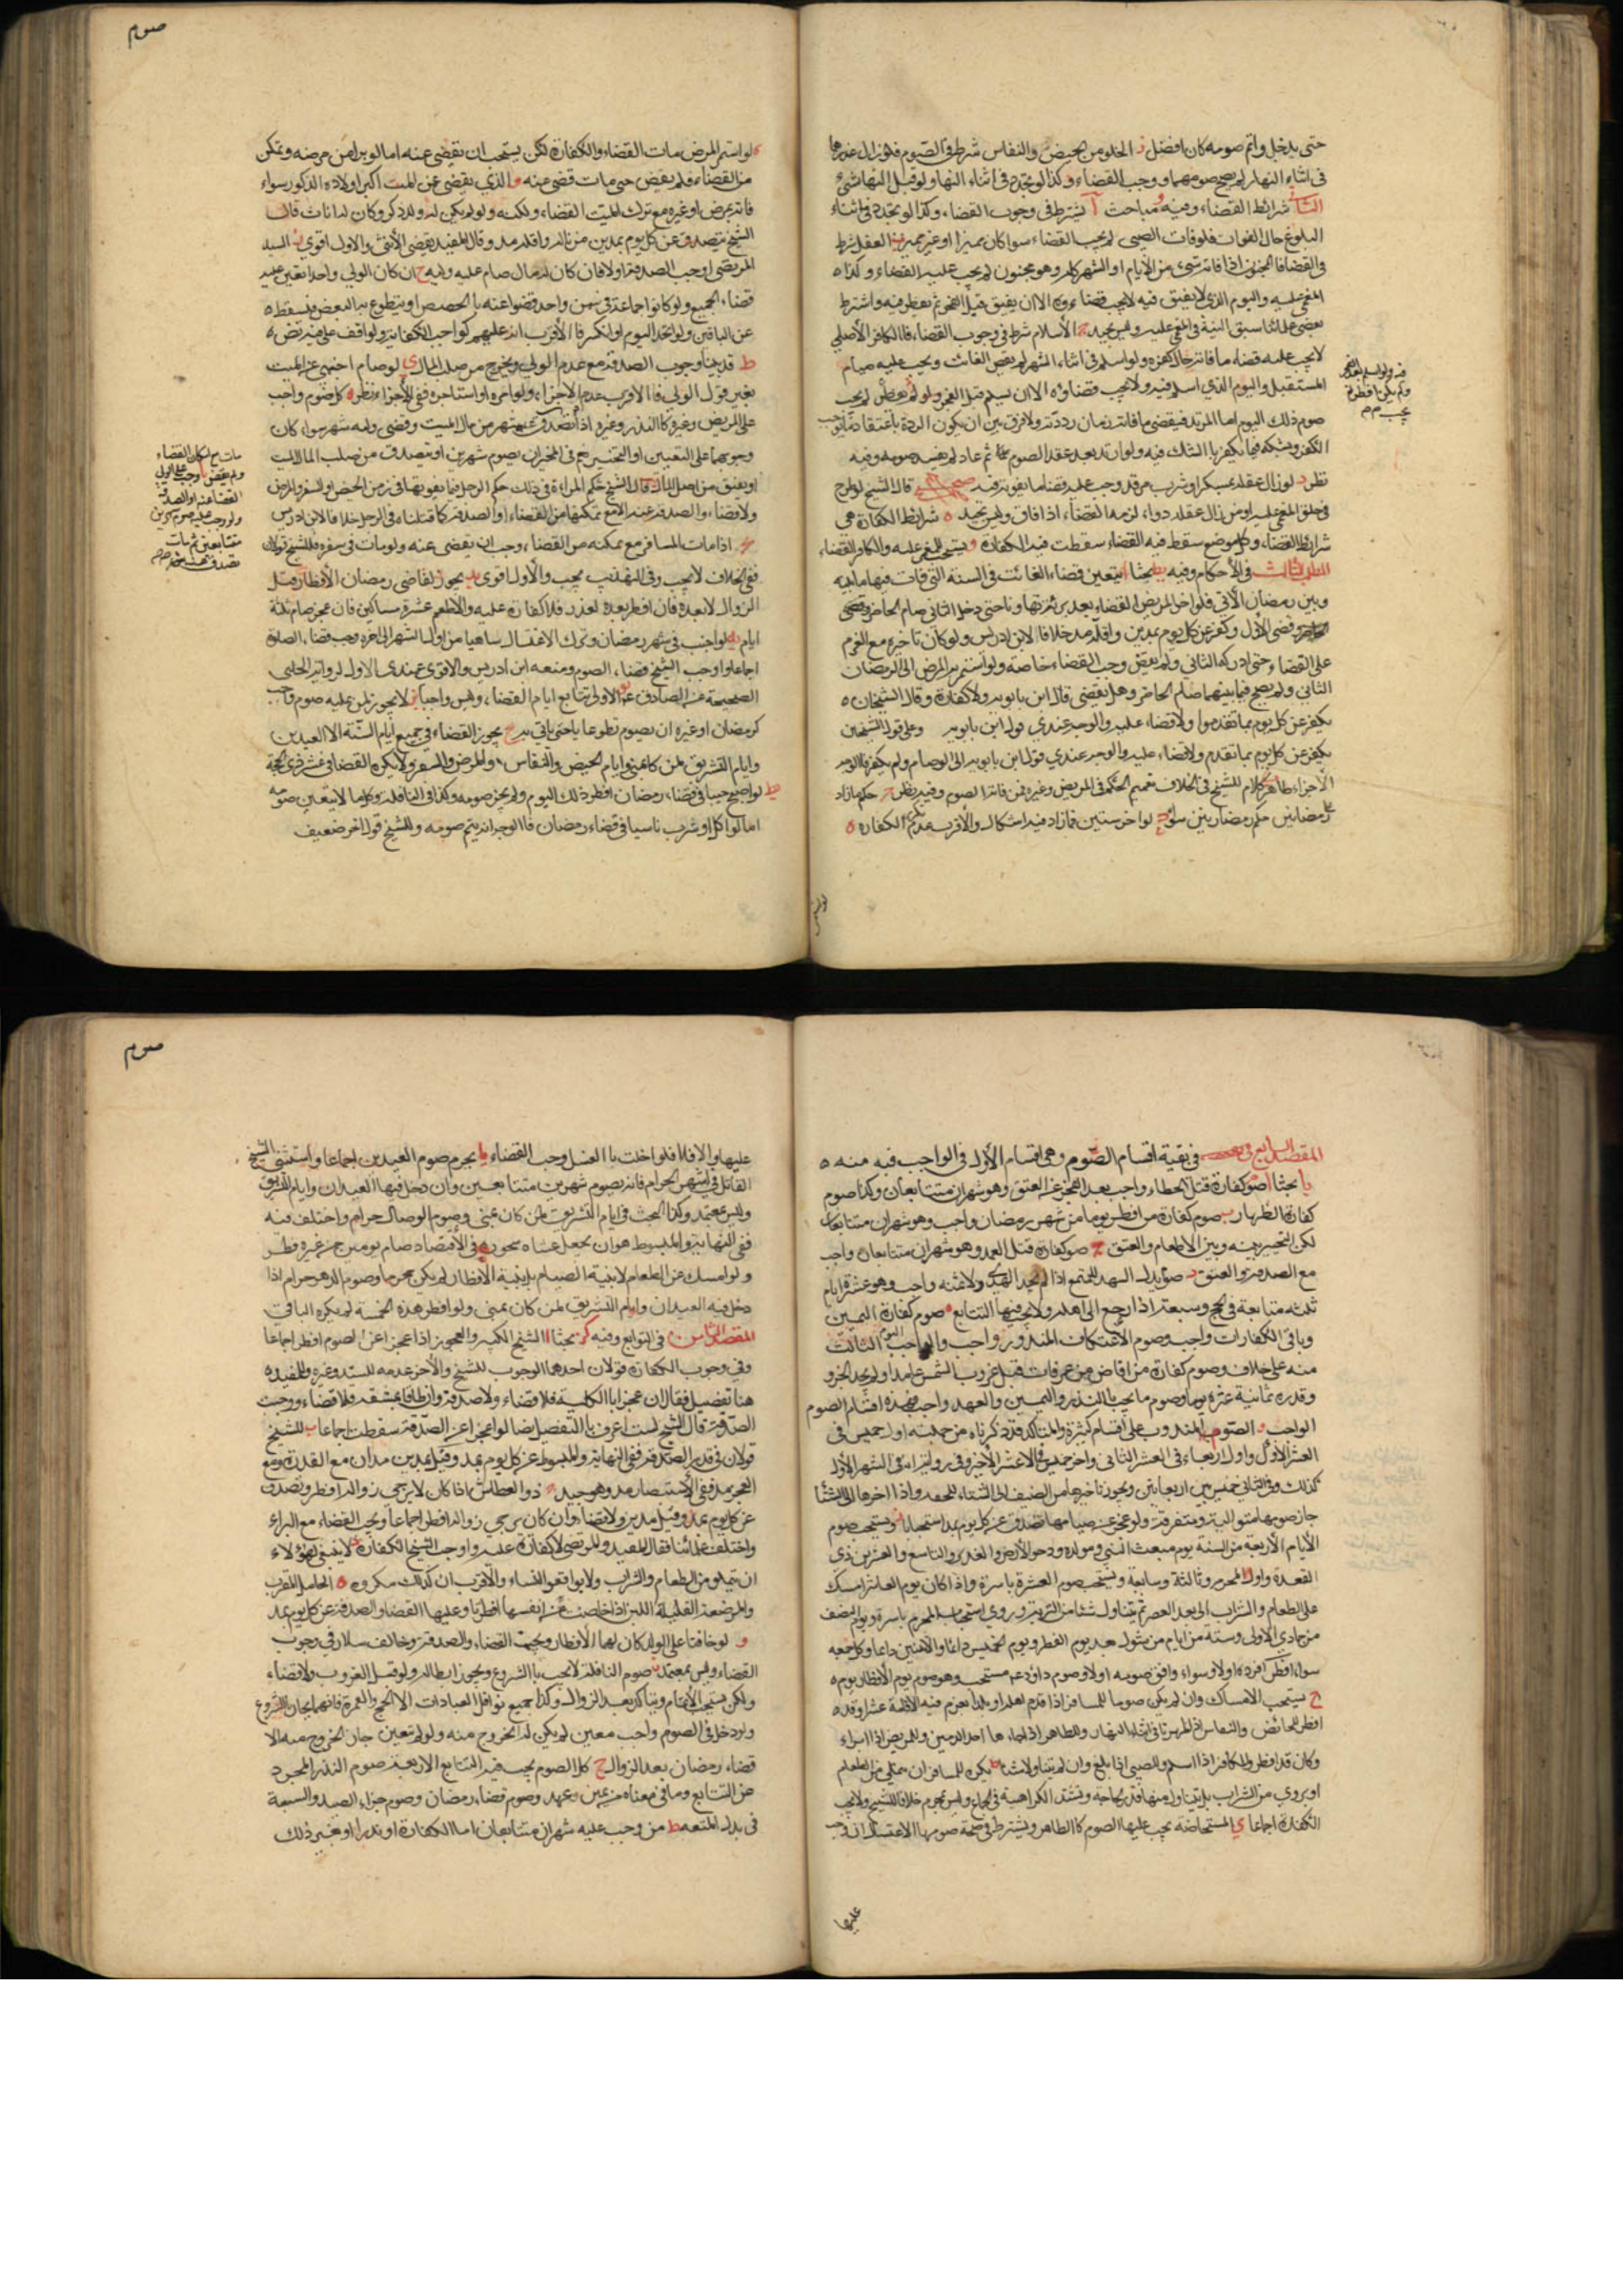 حتى يدخل واتم صومه كان افضل د الخلو من الحيض والنفاس شرط في الصوم فلو زال عذرها
في اثناء النهار لم يصح صومهما ووجب القضاء وكذا لو تجدد في اثناء النهار ولو قبل النهار بشيء
الثالث شرائط القضاء وفيه مباحث ا يشترط في وجوب القضاء
البلوغ حال الفوات فلو فات الصبي لم يجب القضاء سواء كان مميزا او غير مميز ب العقل شرط
في القضاء فالمجنون اذا فاته شيء من الايام او الشهر كله وهو مجنون لم يجب عليه القضاء وكذا
المغمى عليه واليوم الذي لا يفيق فيه لا يجب قضاءه الا ان يفيق قبل الفجر ثم يفطر فيه واشترط
بعض علمائنا سبق النية في المغمى عليه وليس بجيد ج الاسلام شرط في وجوب القضاء فالكافر الاصلي
لا يجب عليه قضاء ما فاته حال كفره ولو اسلم في اثناء الشهر لم يقض الفائت ويجب عليه صيام
المستقبل واليوم الذي اسلم فيه ولا يجب قضاؤه الا ان يسلم قبل الفجر ولو لم يفطر لم يجب
صوم ذلك اليوم اما المرتد فيقضي ما فاته زمان ردته ولا فرق بين ان يكون الردة باعتقاد ما يوجب
الكفر وبشكه فيما يكفر بالشك فيه ولو ارتد بعد عقد الصوم ثم عاد لم يفسد صومه وفيه
نظر د لو زال عقله بمسكر او شرب مرقد وجب عليه قضاء ما يفوته فيه قال الشيخ لو طرح
في حلق المغمى عليه او من زال عقله دواء لزمه القضاء اذا افاق وليس بجيد ه شرائط الكفارة هي
شرائط القضاء وكل موضع سقط فيه القضاء سقطت فيه الكفارة ويستحب للمغمى عليه والكافر القضاء
المطلب الثالث في الاحكام وفيه بحثا ا يتعين قضاء الفائت في السنة التي فات فيها ما بينه
وبين رمضان الآتي فلو اخل المريض القضاء بعد برئه تهاونا حتى دخل الثاني صام الحاضر وقضى
وقضى الاول وكفر عن كل يوم بمدين واقله مد خلافا لابن ادريس ولو كان تاخيره مع العزم
على القضاء حتى ادركه الثاني ولم يقض وجب القضاء خاصة ولو استمر به المرض الى الرمضان
الثاني ولم يصح فيما بينهما صام الحاضر وهل يقضي قال ابن بابويه ولا كفارة وقال الشيخان
يكفر عن كل يوم بما تقدم ولا قضاء عليه والوجه عندي قول ابن بابويه وعلى قول الشيخين
يكفر عن كل يوم بما تقدم ولا قضاء عليه والوجه عندي قول ابن بابويه الى لو صام ولم يكفر فالوجه
الاجزاء ظاهر كلام الشيخ في الخلاف تعميم الحكم في المريض وغيره ممن فاته الصوم وفيه نظر ج حكم ما زاد
على رمضانين حكم رمضانين سواء د لو اخر سنتين فما زاد فيه اشكال والاقرب عدم تكرر الكفارة
فيه ولو اسلم بعد الفجر
ولم يكن افطر لم
يجب صح
لو استمر
صوم
ه لو استمر المرض مات القضاء والكفارة لكن يستحب ان يقضى عنه اما لو برا من مرضه وتمكن
من القضاء فلم يقض حتى مات قضى عنه و الذي يقضي عن الميت اكبر اولاده الذكور سواء
فاته بمرض او غيره مع ترك الميت القضاء ومكنته ولو لم يكن له ولد ذكر وكان له اناث قال
الشيخ يتصدق عن كل يوم بمدين من ماله واقله مد وقال المفيد يقضي الانثى والاول اقوى ز السيد
المرتضى اوجب الصدقة اولا فان كان له مال صام عليه وليه ح ان كان الولي واحدا تعين عليه
قضاء الجميع ولو كانوا جماعة في سن واحد قضوا عنه بالحصص او يتطوع به البعض فيسقط
عن الباقين ولو اتحد اليوم او انكسر فالاقرب انه عليهم كواجب الكفاية ولم اقف على فيه نص
ط قد بينا وجوب الصدقة مع عدم الولي ويخرج من صلب المال ي لو صام اجنبي عن الميت
بغير قول الولي فالاقرب عدم الاجزاء ولو امره او استاجره ففي الاجزاء نظر كل صوم واجب
على المريض وغيره كالنذر وغيره اذا تصدق عنه شهر من مال الميت وقضى وليه شهرا سواء كان
وجوبهما على التعيين او التخيير فيتخير ان يصوم شهرين او يتصدق من صلب المال الميت
او يعتق من اصل المال قال الشيخ حكم المراة في ذلك حكم الرجل فيما يفوتها في زمن الحيض او السفر والمرض
ولا قضاء والصدقة عنه الا مع تمكنها من القضاء والصدقة كما قلناه في الرجل خلافا لابن ادريس
اذا مات المسافر مع تمكنه من القضاء وجب ان يقضى عنه ولو مات في سفره فللشيخ قولان
ففي الخلاف لا يجب وفي التهذيب يجب والاول اقوى يد يجوز لقاضي رمضان الافطار قبل
الزوال لا بعده فان افطر بعده لعذر فلا كفارة عليه والا اطعم عشرة مساكين فان عجز صام ثلثة
ايام يه لو اجنب في شهر رمضان وترك الاغتسال ساهيا من اول الشهر الى اخره وجب قضاء الصلوة
اجماعا واوجب الشيخ قضاء الصوم ومنعه ابن ادريس والاقوى عندي الاول لرواية الحلبي
الصحيحة عن الصادق ع يو الاولى تتابع ايام القضاء وليس واجبا يز لا يجوز لمن عليه صوم واجب
كرمضان او غيره ان يصوم تطوعا حتى ياتي به يح يجوز القضاء في جميع ايام السنة الا العيدين
وايام التشريق لمن كان بمنى وايام الحيض والنفاس والمرض والسفر ولا يكره القضاء في عشر ذي الحجة
يط لو اصبح جنبا في قضاء رمضان افطر ذلك اليوم ولم يجز صومه وكذا في النافلة وكل ما لا يتعين صومه
اما لو اكل او شرب ناسيا في قضاء رمضان فالوجه انه يتم صومه وللشيخ قول اخر ضعيف
مات مع امكان القضاء
ولم يقض وجب على الولي
القضاء عنه او الصدقة
ولو وجب عليه صوم شهرين
متتابعين ثم مات
تصدق عنه بشهر صح
المقصد السابع في بقية اقسام الصوم وهي اقسام الاول في الواجب فيه منه
بحثا ا صوم كفارة قتل الخطاء واجب بعد العجز عن العتق وهو شهران متتابعان وكذا صوم
كفارة الظهار ب صوم كفارة من افطر يوما من شهر رمضان واجب وهو شهران متتابعان
لكن التخيير بينه وبين الاطعام والعتق ج صوم كفارة قتل العمد وهو شهران متتابعان واجب
مع الصدقة والعتق د صوم بدل الهدي للمتمتع اذا لم يجد الهدي ولا ثمنه واجب وهو عشرة ايام
ثلثة متتابعة في الحج وسبعة اذا رجع الى اهله ولا يجب فيها التتابع ه صوم كفارة اليمين
وباقي الكفارات واجب وصوم الاعتكاف المنذور واجب والواجب اليوم الثالث
منه على خلاف وصوم كفارة من افاض من عرفات قبل غروب الشمس عامدا ولم يجد الجزور
وقدره ثمانية عشر يوما وصوم ما يجب بالنذر واليمين والعهد واجب فهذه اقسام الصوم
الواجب و الصوم المندوب على اقسام كثيرة والمتاكد قد ذكرناه من جملته اول خميس في
العشر الاول واول اربعاء في العشر الثاني واخر خميس في الاعشر الاخير وفي رواية في الشهر الاول
كذلك وفي الثاني خميس بين اربعاءين ويجوز تاخيرها من الصيف الى الشتاء للجهد واذا اخرها الى الشتا
جاز صومها متوالية ومتفرقة ولو عجز عن صيامها تصدق عن كل يوم بمد استحبابا ز ويستحب صوم
الايام الاربعة من السنة يوم مبعث النبي ومولده ودحو الارض والغدير والتاسع والعشرين ذي
القعدة واول المحرم وثالثه وسابعه ويستحب صوم العشرة باسره واذا كان يوم العاشر امسك
على الطعام والشراب الى بعد العصر ثم يتناول شيئا من التربة وروي استحباب المحرم باسره ويوم النصف
من جمادي الاولى وستة من ايام من شوال بعد يوم الفطر ويوم الخميس دائما والاثنين دائما وكل جمعة
سواء افطر افرده اولا وسواء وافق صومه اولا وصوم داود ع مستحب وهو صوم يوم الافطار يوم
ح يستحب الامساك وان لم يكن صوما للمسافر اذا قدم اهله او بلدا يعزم فيه الاقامة عشرا وقد
افطر للحائض والنفساء اذا طهرتا في اثناء النهار وللطاهر اذا جاءها احد الدمين وللمريض اذا برا
وكان قد افطر وللكافر اذا اسلم وللصبي اذا بلغ وان لم يتناولا شيئا ط يكره للمسافر ان يمتلي من الطعام
او يروي من الشراب بل يتناول منهما قدر الحاجة وتشتد الكراهية في الجماع وليس بمحرم خلافا للشيخ ولا يجب
الكفارة اجماعا ي المستحاضة يجب عليها الصوم كالطاهر ويشترط في صحة صومها الاغتسال ان وجب
عليها
صوم
عليها والا فلا فلو اخلت بالغسل وجب القضاء يا يحرم صوم العيدين اجماعا واستثنى الشيخ
القاتل في اشهر الحرام فانه يصوم شهرين متتابعين وان دخل فيها العيدان وايام التشريق
وليس بمعتمد وكذا البحث في ايام التشريق لمن كان بمنى وصوم الوصال حرام واختلف فيه
ففي النهاية والمبسوط هو ان يجعل عشاه سحوره وفي الاقتصاد صام يومين من غير فطر
ولو امسك عن الطعام لا بنية الصيام بل بنية الافطار لم يكن محرما وصوم الدهر حرام اذا
دخل فيه العيدان وايام التشريق لمن كان بمنى ولو افطر هذه الخمسة لم يكره الباقي
المقصد الثامن في التوابع وفيه بحثا ا الشيخ الكبير والعجوز اذا عجزا عن الصوم افطرا اجماعا
وفي وجوب الكفارة قولان احدهما الوجوب للشيخ والاخر عدمه للسيد وغيره وللمفيد
هنا تفصيل فقال ان عجزا بالكلية فلا قضاء ولا صدقة وان طاقا بمشقة فلا قضاء ووجبت
الصدقة قال الشيخ لست اعرف بالتفصيل ايضا لو عجزا عن الصدقة سقطت اجماعا ب للشيخ
قولان في قدر الصدقة ففي النهاية والمبسوط عن كل يوم بمد وقيل بمدين مدان مع القدرة ومع
العجز بمد ففي الاستبصار مد وهو جيد ج ذو العطاش اذا كان لا يرجى زواله افطر وتصدق
عن كل يوم بمد وقيل مدين ولا قضاء وان كان يرجى زواله افطر اجماعا ويجب القضاء مع البراء
واختلف علمائنا فقال المفيد والمرتضى لا كفارة عليه واوجب الشيخ الكفارة د لا ينبغي لهؤلاء
ان يتملو من الطعام والشراب ولا يواقعوا النساء والاقرب ان كذلك مكروه ه الحامل المقرب
والمرضعة القليلة اللبن اذا خافت على نفسها افطرتا وعليهما القضاء والصدقة عن كل يوم بمد
و لو خافتا على الولد كان لهما الافطار ويجب القضاء والصدقة وخالف سلار في وجوب
القضاء وليس بمعتمد ز صوم النافلة لا يجب بالشروع ويجوز ابطاله ولو قبل الغروب ولا قضاء
ولكن يستحب الاتمام ويتاكد بعد الزوال وكذا جميع نوافل العبادات الا الحج والعمرة فانهما يجبان بالشروع
ولو دخل في الصوم واجب معين لم يكن له الخروج منه ولو لم يتعين جاز الخروج منه الا
قضاء رمضان بعد الزوال ح كل الصوم يجب فيه التتابع الا اربعة صوم النذر المجرد
عن التتابع وما في معناه من يمين وعهد وصوم قضاء رمضان وصوم جزاء الصيد والسبعة
في بدل المتعه ط من وجب عليه شهران متتابعان اما الكفارة او نذرا او غير ذلك